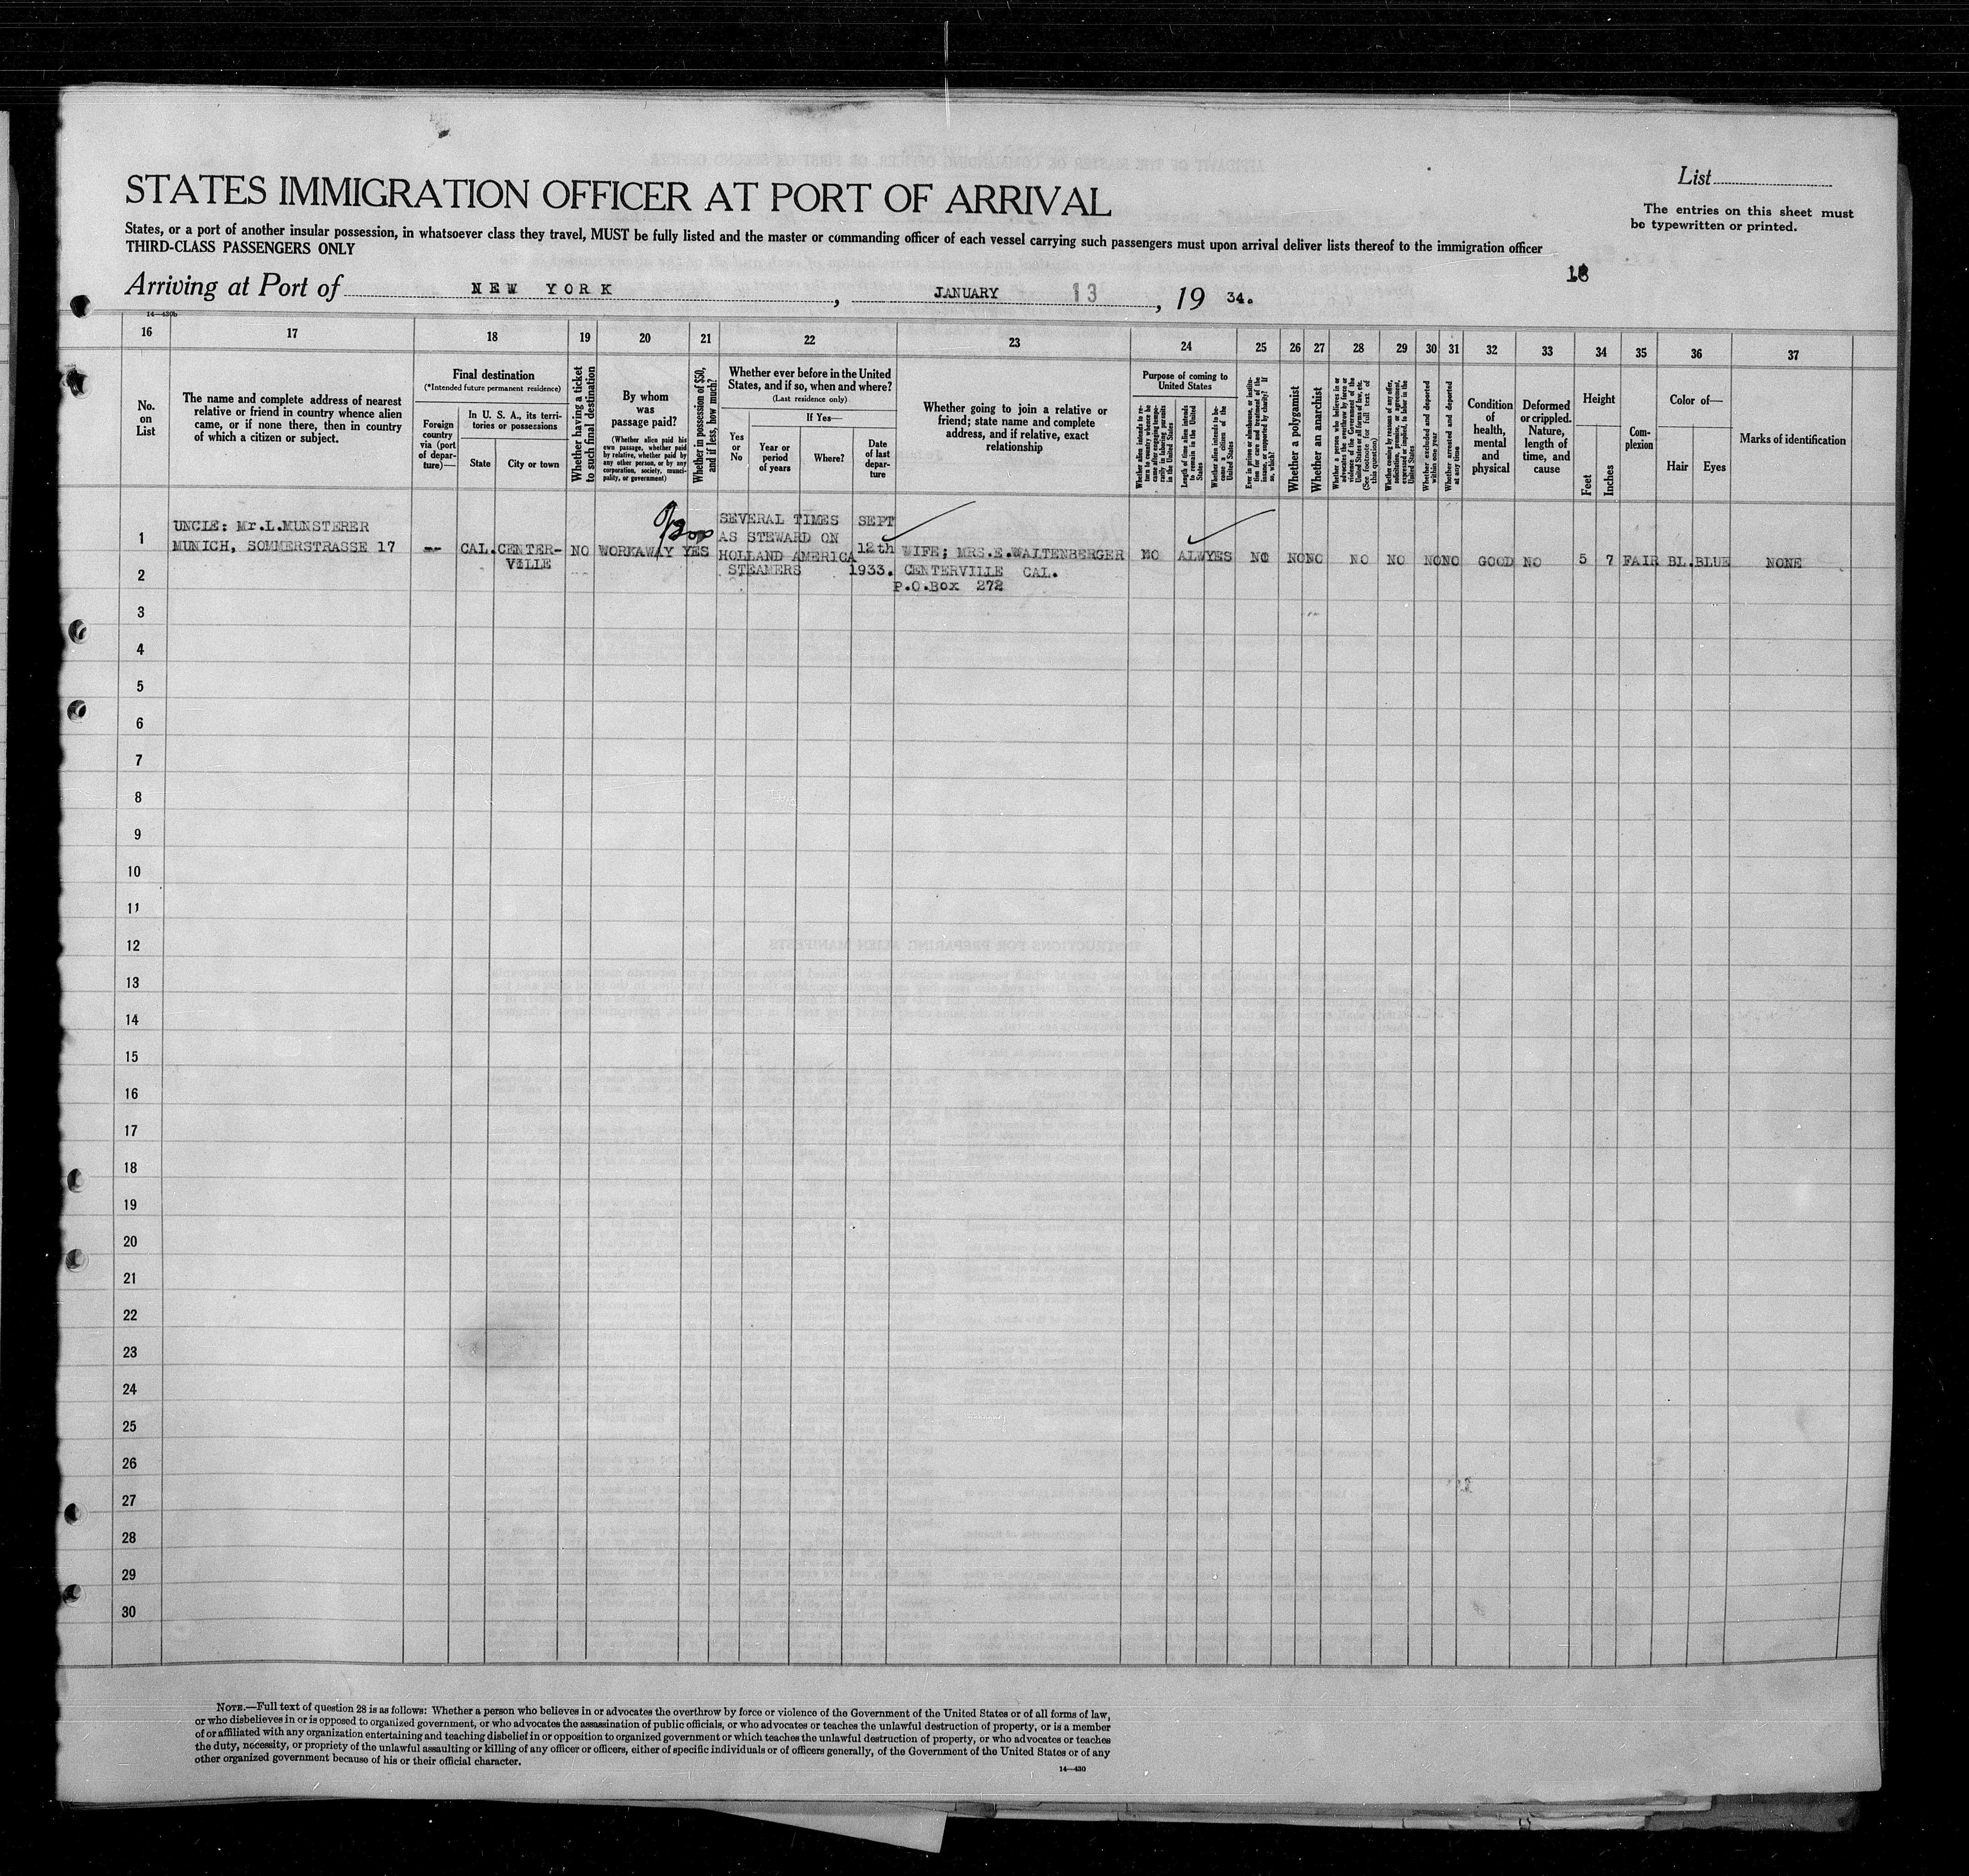 List
STATES IMMIGRATION OFFICER AT PORT OF ARRIVAL
The entries on this sheet must
be typewritten or printed.
States, or a port of another insular possession, in whatsoever class they travel, MUST be fully listed and the master or commanding officer of each vessel carrying such passengers must upon arrival deliver lists thereof to the immigration officer
THIRD-CLASS PASSENGERS ONLY
Arriving at Port of NEW YORK, JANUARY 13, 19 34.
14—430b
16 17 18 19 20 21 22 23 24 25 26 27 28 29 30 31 32 33 34 35 36 37
No.
on
List
The name and complete address of nearest
relative or friend in country whence alien
came, or if none there, then in country
of which a citizen or subject.
Final destination
(*Intended future permanent residence)
Foreign
country
via (port
of depar-
ture)—
In U. S. A., its terri-
tories or possessions
State
City or town
Whether having a ticket
to such final destination
By whom
was
passage paid?
(Whether alien paid his
own passage, whether paid
by relative, whether paid by
any other person, or by any
corporation, society, munici-
pality, or government)
Whether in possession of $50,
and if less, how much?
Whether ever before in the United
States, and if so, when and where?
(Last residence only)
Yes
or
No
If Yes—
Year or
period
of years
Where?
Date
of last
depar-
ture
Whether going to join a relative or
friend; state name and complete
address, and if relative, exact
relationship
Purpose of coming to
United States
Whether alien intends to re-
turn to country whence he
came after engaging tempo-
rarily in laboring pursuits
in the United States
Length of time alien intends
to remain in the United
States
Whether alien intends to be-
come a citizen of the
United States
Ever in prison or almshouse, or institu-
tion for care and treatment of the
insane, or supported by charity? If
so, which?
Whether a polygamist
Whether an anarchist
Whether a person who believes in or
advocates the overthrow by force or
violence of the Government of the
United States or all forms of law, etc.
(See footnote for full text of
this question)
Whether coming by reason of any offer,
solicitation, promise, or agreement,
expressed or implied, to labor in the
United States
Whether excluded and deported
within one year
Whether arrested and deported
at any time
Condition
of
health,
mental
and
physical
Deformed
or crippled.
Nature,
length of
time, and
cause
Height
Feet
Inches
Com-
plexion
Color of—
Hair
Eyes
Marks of identification
1
UNCLE: Mr.L.MUNSTERER
MUNICH, SOMMERSTRASSE 17
--
CAL.
CENTER-
VILLE
NO
WORKAWAY
YES
SEVERAL TIMES
AS STEWARD ON
HOLLAND AMERICA
STEAMERS
SEPT
12th
1933.
WIFE; MRS.E.WALTENBERGER
CENTERVILLE CAL.
P.O.Box 272
NO ALW YES NO NO NO NO NO NO NO GOOD NO 5 7 FAIR BL. BLUE NONE
2
3
4
5
6
7
8
9
10
11
12
13
14
15
16
17
18
19
20
21
22
23
24
25
26
27
28
29
30
NOTE.—Full text of question 28 is as follows: Whether a person who believes in or advocates the overthrow by force or violence of the Government of the United States or of all forms of law,
or who disbelieves in or is opposed to organized government, or who advocates the assassination of public officials, or who advocates or teaches the unlawful destruction of property, or is a member
of or affiliated with any organization entertaining and teaching disbelief in or opposition to organized government or which teaches the unlawful destruction of property, or who advocates or teaches
the duty, necessity, or propriety of the unlawful assaulting or killing of any officer or officers, either of specific individuals or of officers generally, of the Government of the United States or of any
other organized government because of his or their official character.
14—430